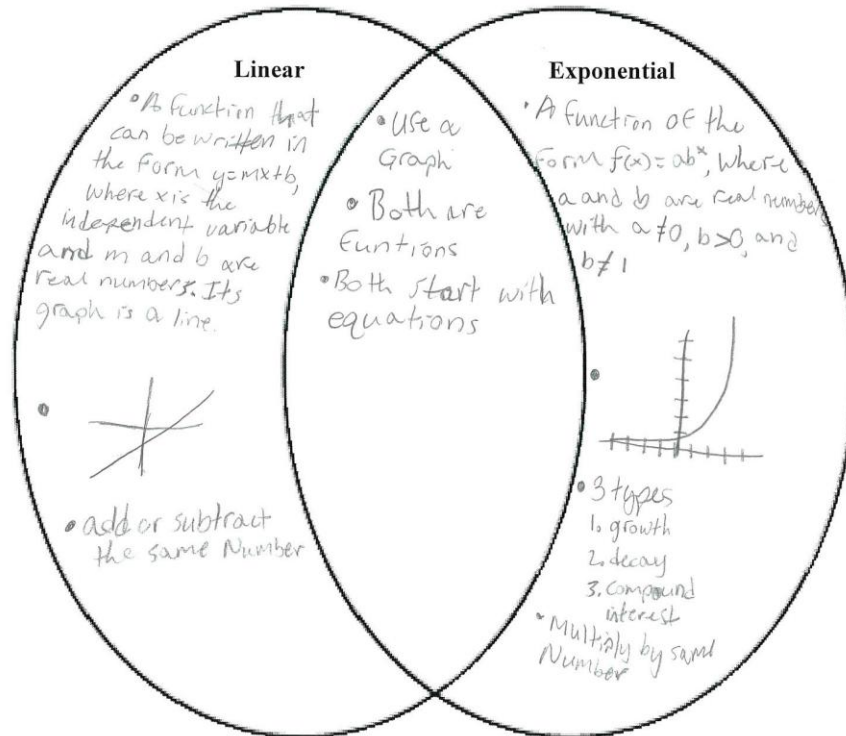 Linear
• A function that
can be written in
the form y=mx+b,
where x is the
independent variable
and m and b are
real numbers. Its
graph is a line.
• add or subtract
the same Number
• Use a
Graph
• Both are
Funtions
• Both start with
equations
Exponential
• A function of the
form f(x)=abˣ, where
a and b are real numbers
with a≠0, b>0, and
b≠1
• 3 types
1. growth
2. decay
3. compound
interest
• Multiply by same
Number